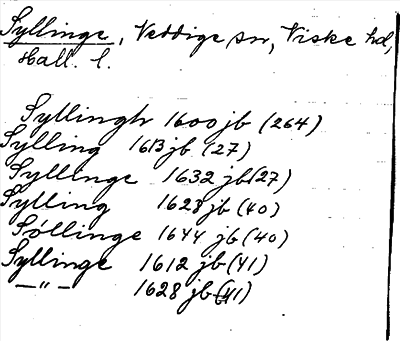 Syllinge, Veddige sn, Viske hd,
Hall. l.
Syllingh 1600 jb (264)
Sylling 1613 jb (27)
Syllinge 1632 jb (27)
Sylling 1628 jb (40)
Søllinge 1644 jb (40)
Syllinge 1612 jb (41)
—"— 1628 jb (41)